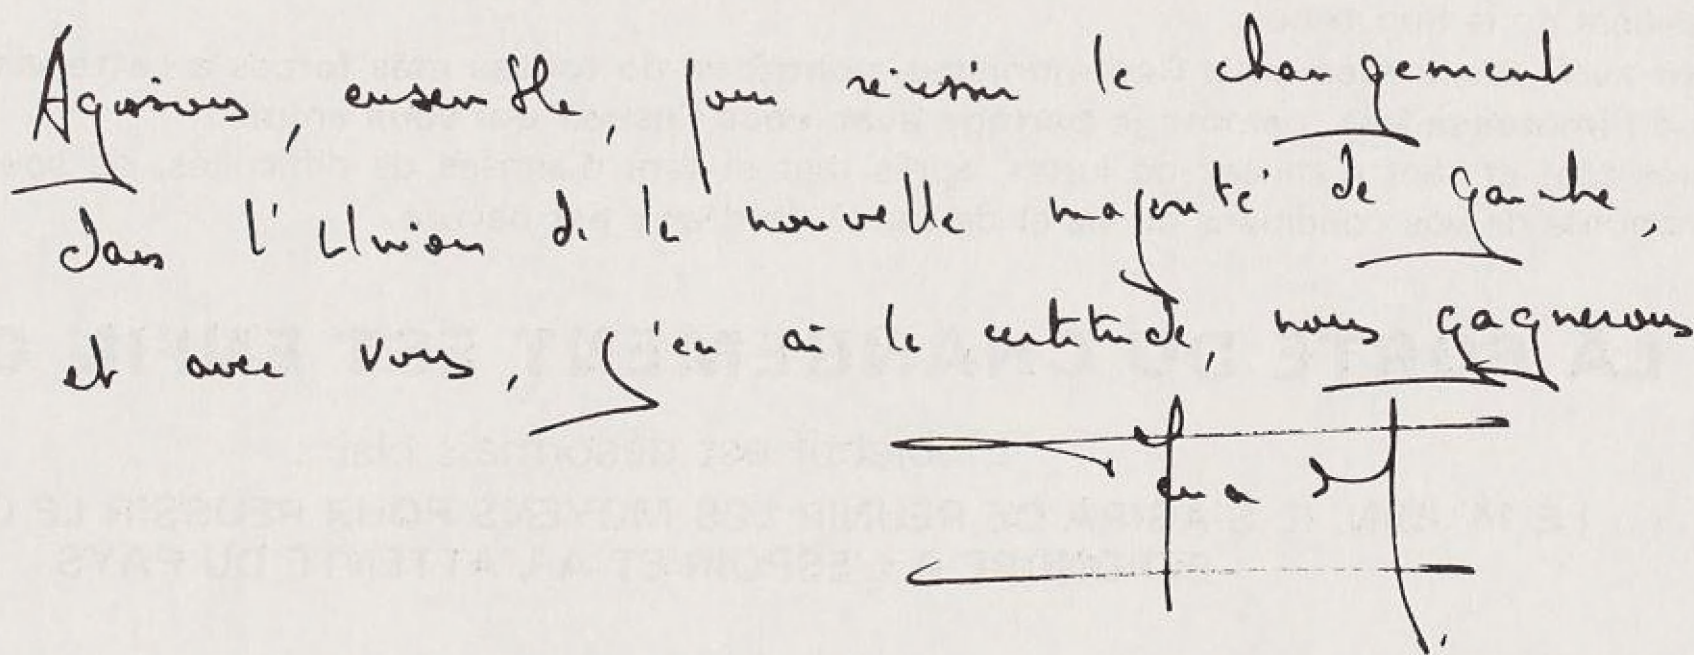 Agissons, ensemble, pour réussir le changement
dans l'Union de la nouvelle majorité de gauche,
et avec vous, j'en ai la certitude, nous gagnerons